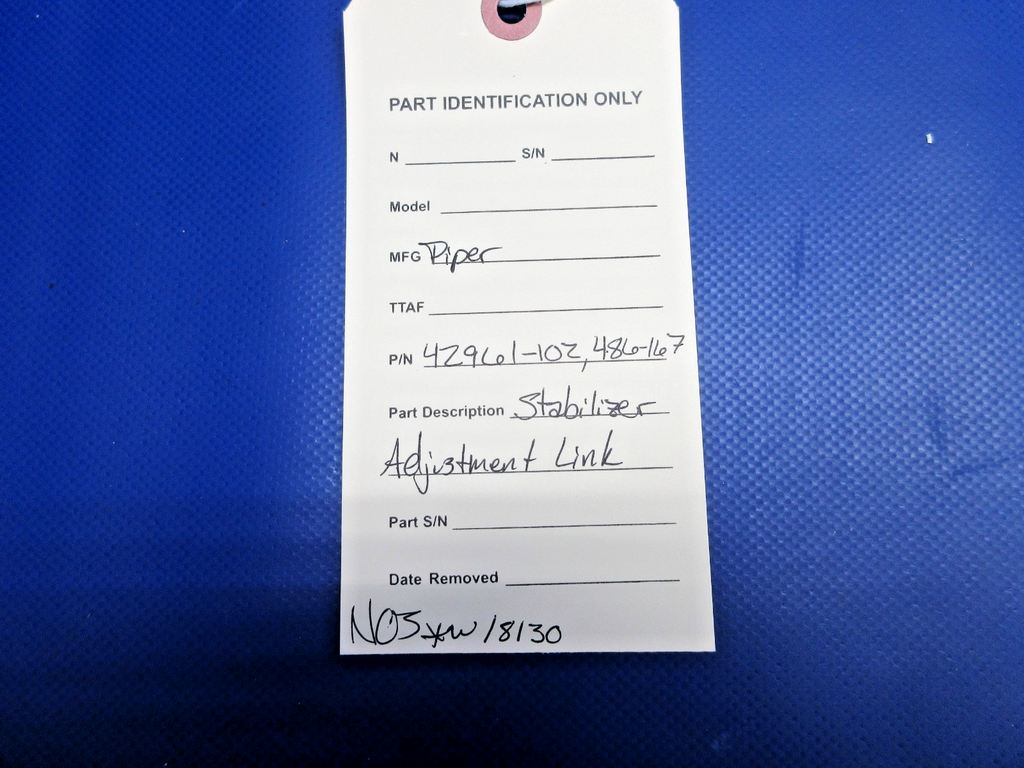 PART IDENTIFICATION ONLY
N S/N
Model
MFG Piper
TTAF
P/N 42961-102, 486-167
Part Description Stabilizer
Adjustment Link
Part S/N
Date Removed
NOS w/8130